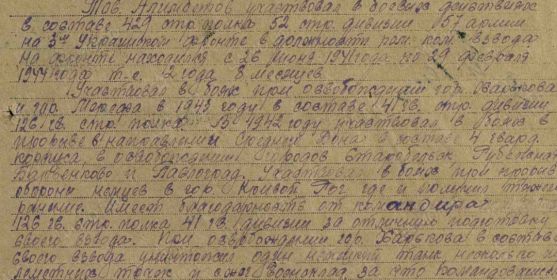 Тов. Алимбетов участвовал в боевых действиях
в составе 429 стр. полка 52 стр. дивизии 57 армии
на 3м Украинском фронте в должности пом. ком. взвода
На фронте находился с 26 июня 1941 года по 29 февраля
1944 года т-е. 2 года 8 месяцев.
Участвовал в боях при освобождении гор. Харькова
и гор. в 1943 году в составе 41 гв. стр. дивизии
126 гв. стр. полка. В 1942 году участвовал в боях в
прорыве в направлении Среднего Дона в составе 4 гвард.
корпуса, в освобождении городов Старобельск, Рубежная
и Павлоград. Участвовал в боях при прорыве
обороны немцев в гор. Кривой Рог где и получил тяжел.
ранение. Имеет благодарность от командира
126 гв. стр. полка 41 гв. дивизии за отличную подготовку
своего взвода. При освобождении гор. Харькова в составе
своего взвода уничтожил один немецкий танк несколько
точек и сжёг за что Командован